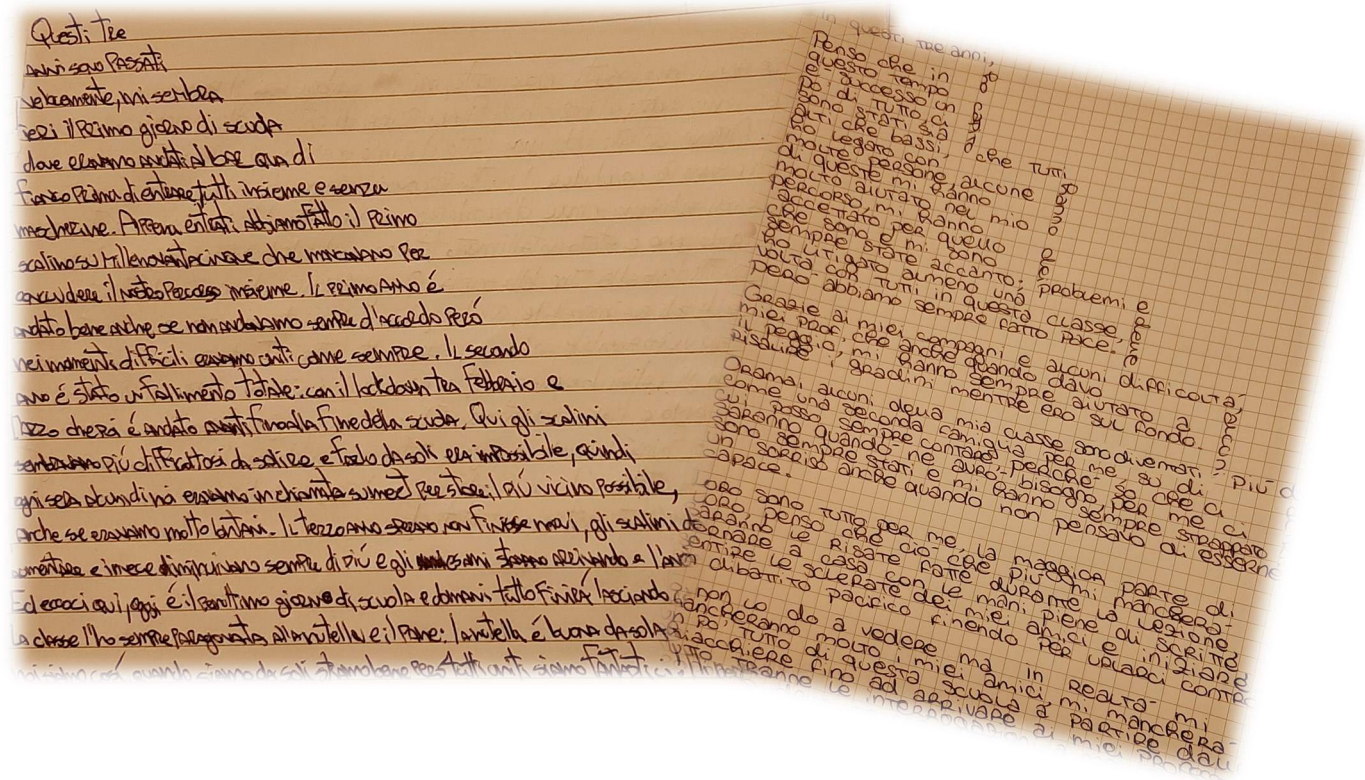 Questi tre
anni sono passati
velocemente, mi sembra
ieri il primo giorno di scuola
dove eravamo andati al bar qua di
fianco prima di entrare tutti insieme e senza
mascherine. Appena entrati abbiamo fatto il primo
scalino su millenovantacinque che mancavano per
concludere il nostro percorso insieme. Il primo anno é
andato bene anche se non andavamo sempre d'accordo però
nei momenti difficili eravamo uniti come sempre. Il secondo
anno é stato un fallimento totale: con il lockdown tra febbraio e
é andato avanti fino alla fine della scuola. Qui gli scalini
sembravano più difficoltosi da salire e farlo da soli era impossibile, quindi
ogni sera alcuni di noi eravamo in chiamata su meet per stare il più vicino possibile,
anche se eravamo molto lontani. Il terzo anno non finisse mai, gli scalini
e invece diminuivano sempre di più e gli esami stanno arrivando e
Ed eccoci qui, oggi é il penultimo giorno di scuola e domani tutto finirà lasciando
la classe l'ho sempre paragonata alla nutella e il pane: la nutella é buona da sola
noi siamo così quando siamo da soli stiamo bene però tutti uniti siamo fantastici
in questi tre anni,
Penso che in
questo tempo
è successo un
po' di tutto, ci
sono stati sia
alti che bassi,
ho legato con
molte persone, alcune
di queste mi hanno
molto aiutato nel mio
percorso, mi hanno
accettato per quello
che sono e mi sono
sempre state accanto.
Ho litigato almeno una
volta con tutti in questa classe,
però abbiamo sempre fatto pace.
ho capito che tutti hanno problemi e
Grazie ai miei compagni e alcuni
miei prof che anche quando davo
il peggio, mi hanno sempre aiutato a
risalire i gradini mentre ero sul fondo.
difficoltà,
Oramai alcuni della mia classe sono diventati
come una seconda famiglia per me su di
cui posso sempre contare perché so che ci
saranno quando ne avrò bisogno, per me ci
sono sempre stati e mi hanno sempre strappato
un sorriso anche quando non pensavo di esserne
capace.
Loro sono tutto per me, la maggior parte di
loro, penso che ciò che più mi mancherà
saranno le risate fatte durante la lezione,
tornare a casa con le mani piene di scritte
sentire le sclerate dei miei amici e iniziare
un dibattito pacifico finendo per urlarci contro
non lo do a vedere ma in realtà mi
mancheranno molto i miei amici, mi mancherà
un po' tutto di questa scuola a partire dalle
fino ad arrivare ai miei
le